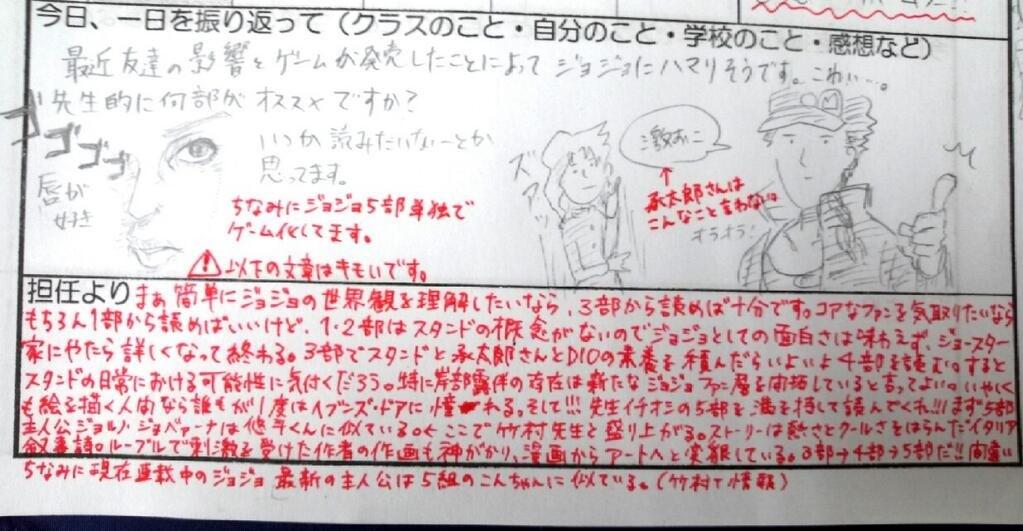 今日、一日を振り返って(クラスのこと・自分のこと・学校のこと・感想など)
最近友達の影響とゲームが発売したことによってジョジョにハマりそうです。こわい…。
先生的に何部がオススメですか?
ゴゴゴゴ
いつか読みたいなーとか
思ってます。
唇が
好き
ズ
ア
激おこ
↑
承太郎さんは
こんなこと言わない。
オラオラ!
ちなみにジョジョ5部単独で
ゲーム化してます。
⚠以下の文章はキモいです。
担任より
まぁ簡単にジョジョの世界観を理解したいなら、3部から読めば十分です。コアなファンを気取りたいなら
もちろん1部から読めばいいけど、1・2部はスタンドの概念がないのでジョジョとしての面白さは味わえず、ジョースター
家にやたら詳しくなって終わる。3部でスタンドと承太郎さんとDIOの素養を積んだらいよいよ4部を読む。すると
スタンドの日常における可能性に気付くだろう。特に岸部露伴の存在は新たなジョジョファン層を開拓していると言ってよい。いやしく
も絵を描く人間なら誰もが1度はヘブンズ・ドアに憧れる。そして!!!先生イチオシの5部を満を持して読んでくれ!!!まず5部
主人公ジョルノ・ジョバァーナは悠斗くんに似ている。←ここで竹村先生と盛り上がる。ストーリーは熱さとクールさをはらんだイタリア
叙事詩。ルーブルで刺激を受けた作者の作画も神がかり、漫画からアートへと実験している。3部→4部→5部だ!!間違い
ちなみに現在連載中のジョジョ最新の主人公は5組のこんちゃんに似ている。(竹村T情報)